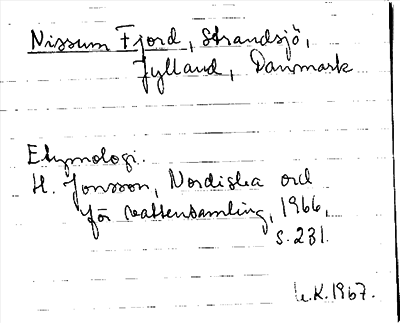 Nissum Fjord, Strandsjö,
Jylland, Danmark
Etymologi.
H. Jonsson, Nordiska ord
för vattensamling, 1966,
s. 231.
K. 1967.